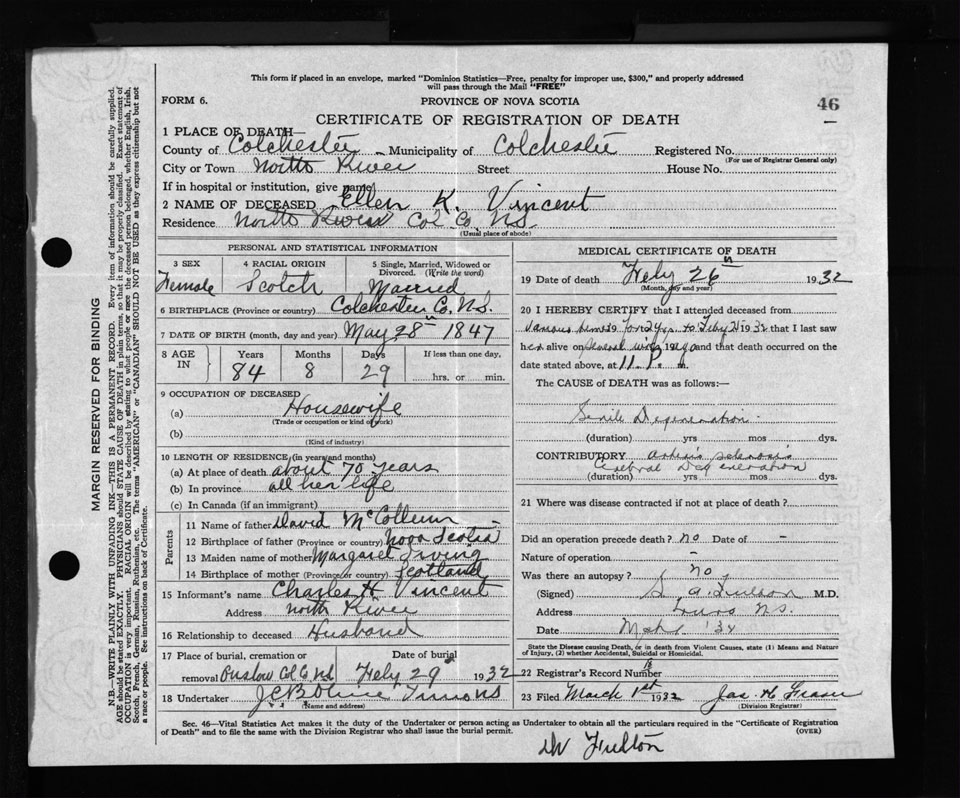 This form if placed in an envelope, marked "Dominion Statistics—Free, penalty for improper use, $300," and properly addressed
will pass through the Mail "FREE"
FORM 6.
PROVINCE OF NOVA SCOTIA
46
CERTIFICATE OF REGISTRATION OF DEATH
1 PLACE OF DEATH—
County of Colchester Municipality of Colchester Registered No.
(For use of Registrar General only)
City or Town North River Street House No.
If in hospital or institution, give name
2 NAME OF DECEASED Ellen K. Vincent
Residence North River Col Co. N.S.
(Usual place of abode)
PERSONAL AND STATISTICAL INFORMATION
3 SEX 4 RACIAL ORIGIN 5 Single, Married, Widowed or Divorced. (Write the word)
Female Scotch Married
6 BIRTHPLACE (Province or country) Colchester Co, N.S.
7 DATE OF BIRTH (month, day and year) May 28th 1847
8 AGE IN Years Months Days If less than one day,
84 8 29 hrs. or min.
9 OCCUPATION OF DECEASED
(a) Housewife
(Trade or occupation or kind of work)
(b)
(Kind of industry)
10 LENGTH OF RESIDENCE (in years and months)
(a) At place of death about 70 years
(b) In province all her life
(c) In Canada (if an immigrant)
Parents
11 Name of father David McCollum
12 Birthplace of father (Province or country) Nova Scotia
13 Maiden name of mother Margaret Irving
14 Birthplace of mother (Province or country) Scotland
15 Informant's name Charles H. Vincent
Address North River
16 Relationship to deceased Husband
17 Place of burial, cremation or Date of burial
removal Onslow Col Co NS Feby 29 1932
18 Undertaker
(Name and address)
MEDICAL CERTIFICATE OF DEATH
19 Date of death Feby 26th 1932
(Month, day and year)
20 I HEREBY CERTIFY that I attended deceased from
various times 19 for 2 yrs. to Feby 21 1932 that I last saw
her alive on several wks 19 ago and that death occurred on the
date stated above, at 11 P. m.
The CAUSE OF DEATH was as follows:—
Senile Degeneration
(duration) yrs mos dys.
CONTRIBUTORY Arterio sclerosis
Cerebral Degeneration
(duration) yrs mos dys.
21 Where was disease contracted if not at place of death?
Did an operation precede death? no Date of -
Nature of operation -
Was there an autopsy? no
(Signed) Fulton M.D.
Address Truro N.S.
Date
State the Disease causing Death, or in death from Violent Causes, state (1) Means and Nature
of Injury, (2) whether Accidental, Suicidal or Homicidal.
22 Registrar's Record Number
23 Filed March 1st 1932 Jas. H. Fraser
(Division Registrar)
Sec. 46—Vital Statistics Act makes it the duty of the Undertaker or person acting as Undertaker to obtain all the particulars required in the "Certificate of Registration
of Death" and to file the same with the Division Registrar who shall issue the burial permit. (OVER)
Dr Fulton
MARGIN RESERVED FOR BINDING
N.B.—WRITE PLAINLY WITH UNFADING INK—THIS IS A PERMANENT RECORD. Every item of information should be carefully supplied.
AGE should be stated EXACTLY. PHYSICIANS should STATE CAUSE OF DEATH in plain terms, so that it may be properly classified. Exact statement of
OCCUPATION is very important. RACIAL ORIGIN will be described by stating to what people or race the deceased person belonged, whether English, Irish,
Scotch, French, German, Russian, Ruthenian, etc. The terms "AMERICAN" or "CANADIAN" SHOULD NOT BE USED as they express citizenship but not
a race or people. See instructions on back of Certificate.